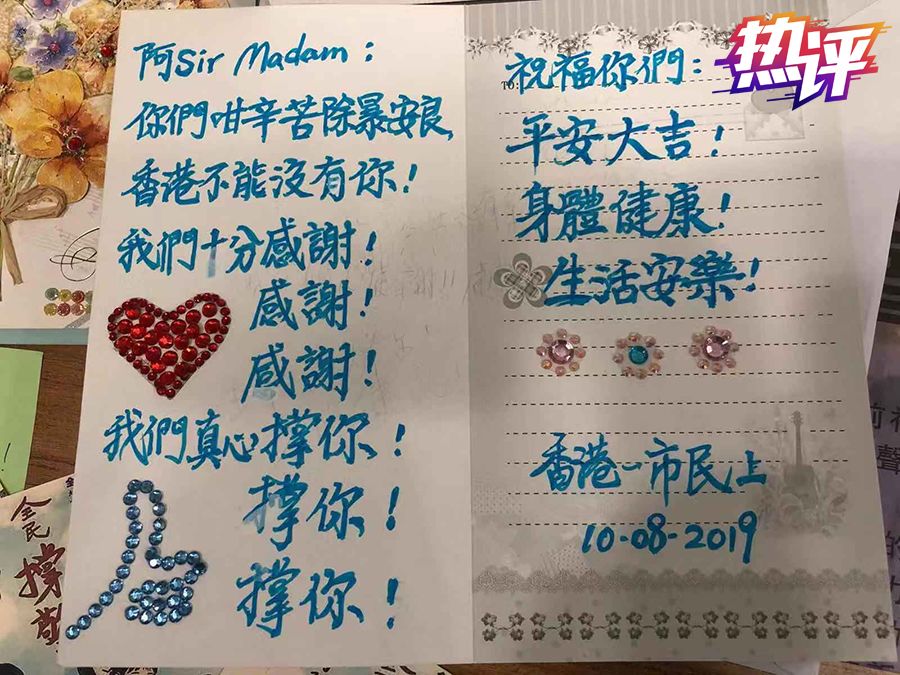 阿Sir Madam：
你們咁辛苦除暴安良,
香港不能沒有你！
我們十分感謝！
感謝！
感謝！
我們真心撐你！
撐你！
撐你！
祝福你們：
TO:
平安大吉！
身體健康！
生活安樂！
香港一市民上
10-08-2019
热评
全民
撐